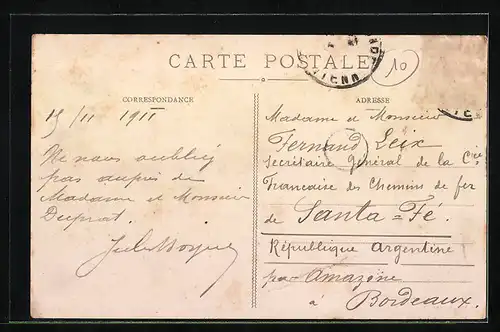 CARTE POSTALE
10
CORRESPONDANCE
ADRESSE
15/11 1911
Ne nous oubliez
pas auprès de
Madame et Monsieur
Duprat.
Madame et Monsieur
Fernand Leix
Secrétaire Général de la Cie
Francaise des Chemins de fer
de Santa=Fé.
République Argentine
par Amazône
à Bordeaux.